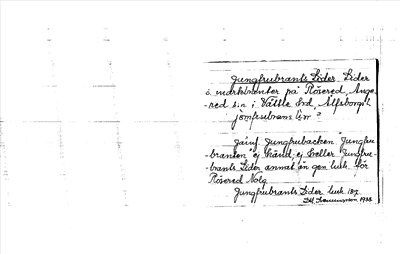 Jungfrubrants Lider. Lider
o. markbranter på Rösered, Ange-
-red s:n i Vättle hd, Älfsborgs l.
jomfrubrans lirr ?
Jämf. Jungfrubacken "Jungfru-
-branten" ej känd, ej heller Jungfru-
-brants Lider annat än gen. luk. för
Rösered Nolg.
Jungfrubrants Lider luk 187.
1933.